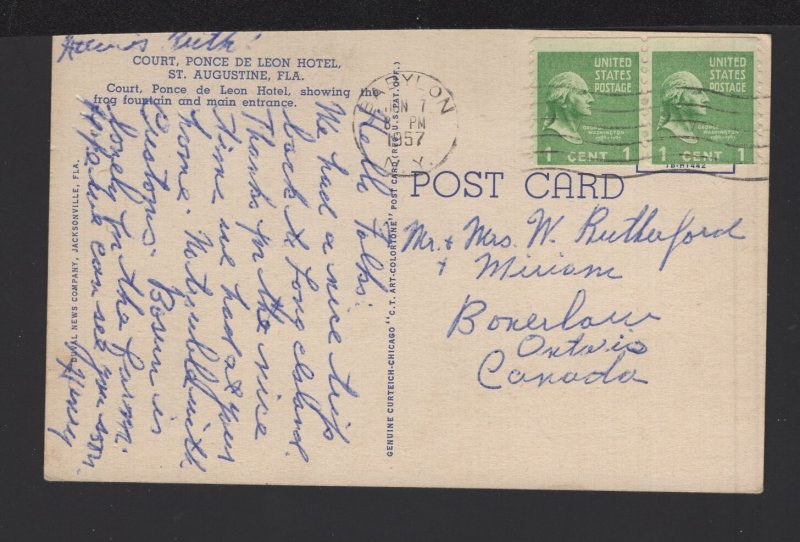 COURT, PONCE DE LEON HOTEL,
ST. AUGUSTINE, FLA.
Court, Ponce de Leon Hotel, showing the
frog fountain and main entrance.
Hello Folks:
We had a nice trip
back to Long Island.
Thanks for the nice
time we had at your
home. No trouble with
Customs. Bosun is
lovely for the
Hope we can see you soon.
Henry
Ruth
DUVAL NEWS COMPANY, JACKSONVILLE, FLA.
GENUINE CURTEICH-CHICAGO "C.T. ART-COLORTONE" POST CARD (REG. U.S. PAT. OFF.)
BABYLON
JUN 7
PM
1957
N.Y.
UNITED
STATES
POSTAGE
GEORGE
WASHINGTON
1 CENT 1
UNITED
STATES
POSTAGE
GEORGE
WASHINGTON
1 CENT 1
7B-H1442
POST CARD
Mr. & Mrs. W. Rutherford
& Miriam
Bonerlaw
Ontrio
Canada